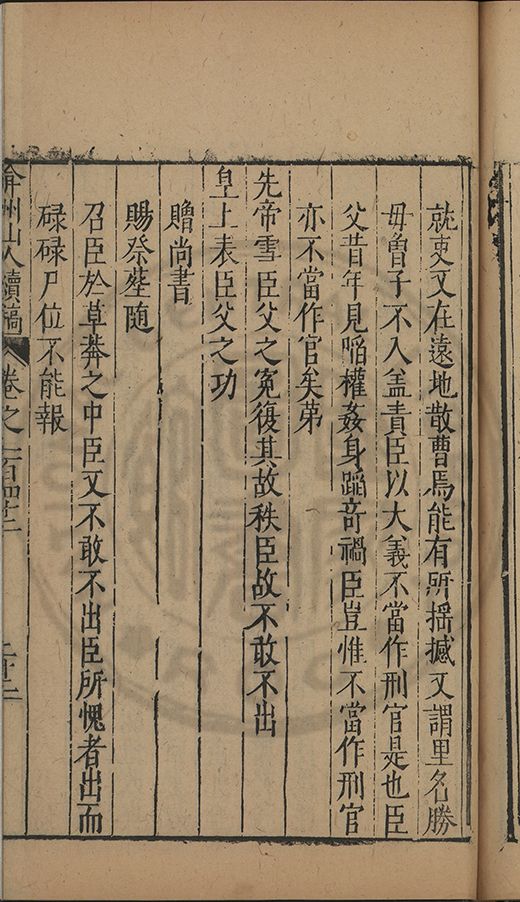 就吏又在遠地散曹焉能有所揺撼又謂里名勝
毋曾子不入盖責臣以大義不當作刑官是也臣
父昔年見陷權姦身蹈竒禍臣豈惟不當作刑官
亦不當作官矣苐
先帝雪臣父之冤復其故秩臣故不敢不出
皇上表臣父之功
贈尚書
賜祭塟隨
召臣於草莽之中臣又不敢不出臣所愧者出而
碌碌尸位不能報
弇州山人續稿 卷之一百四十二